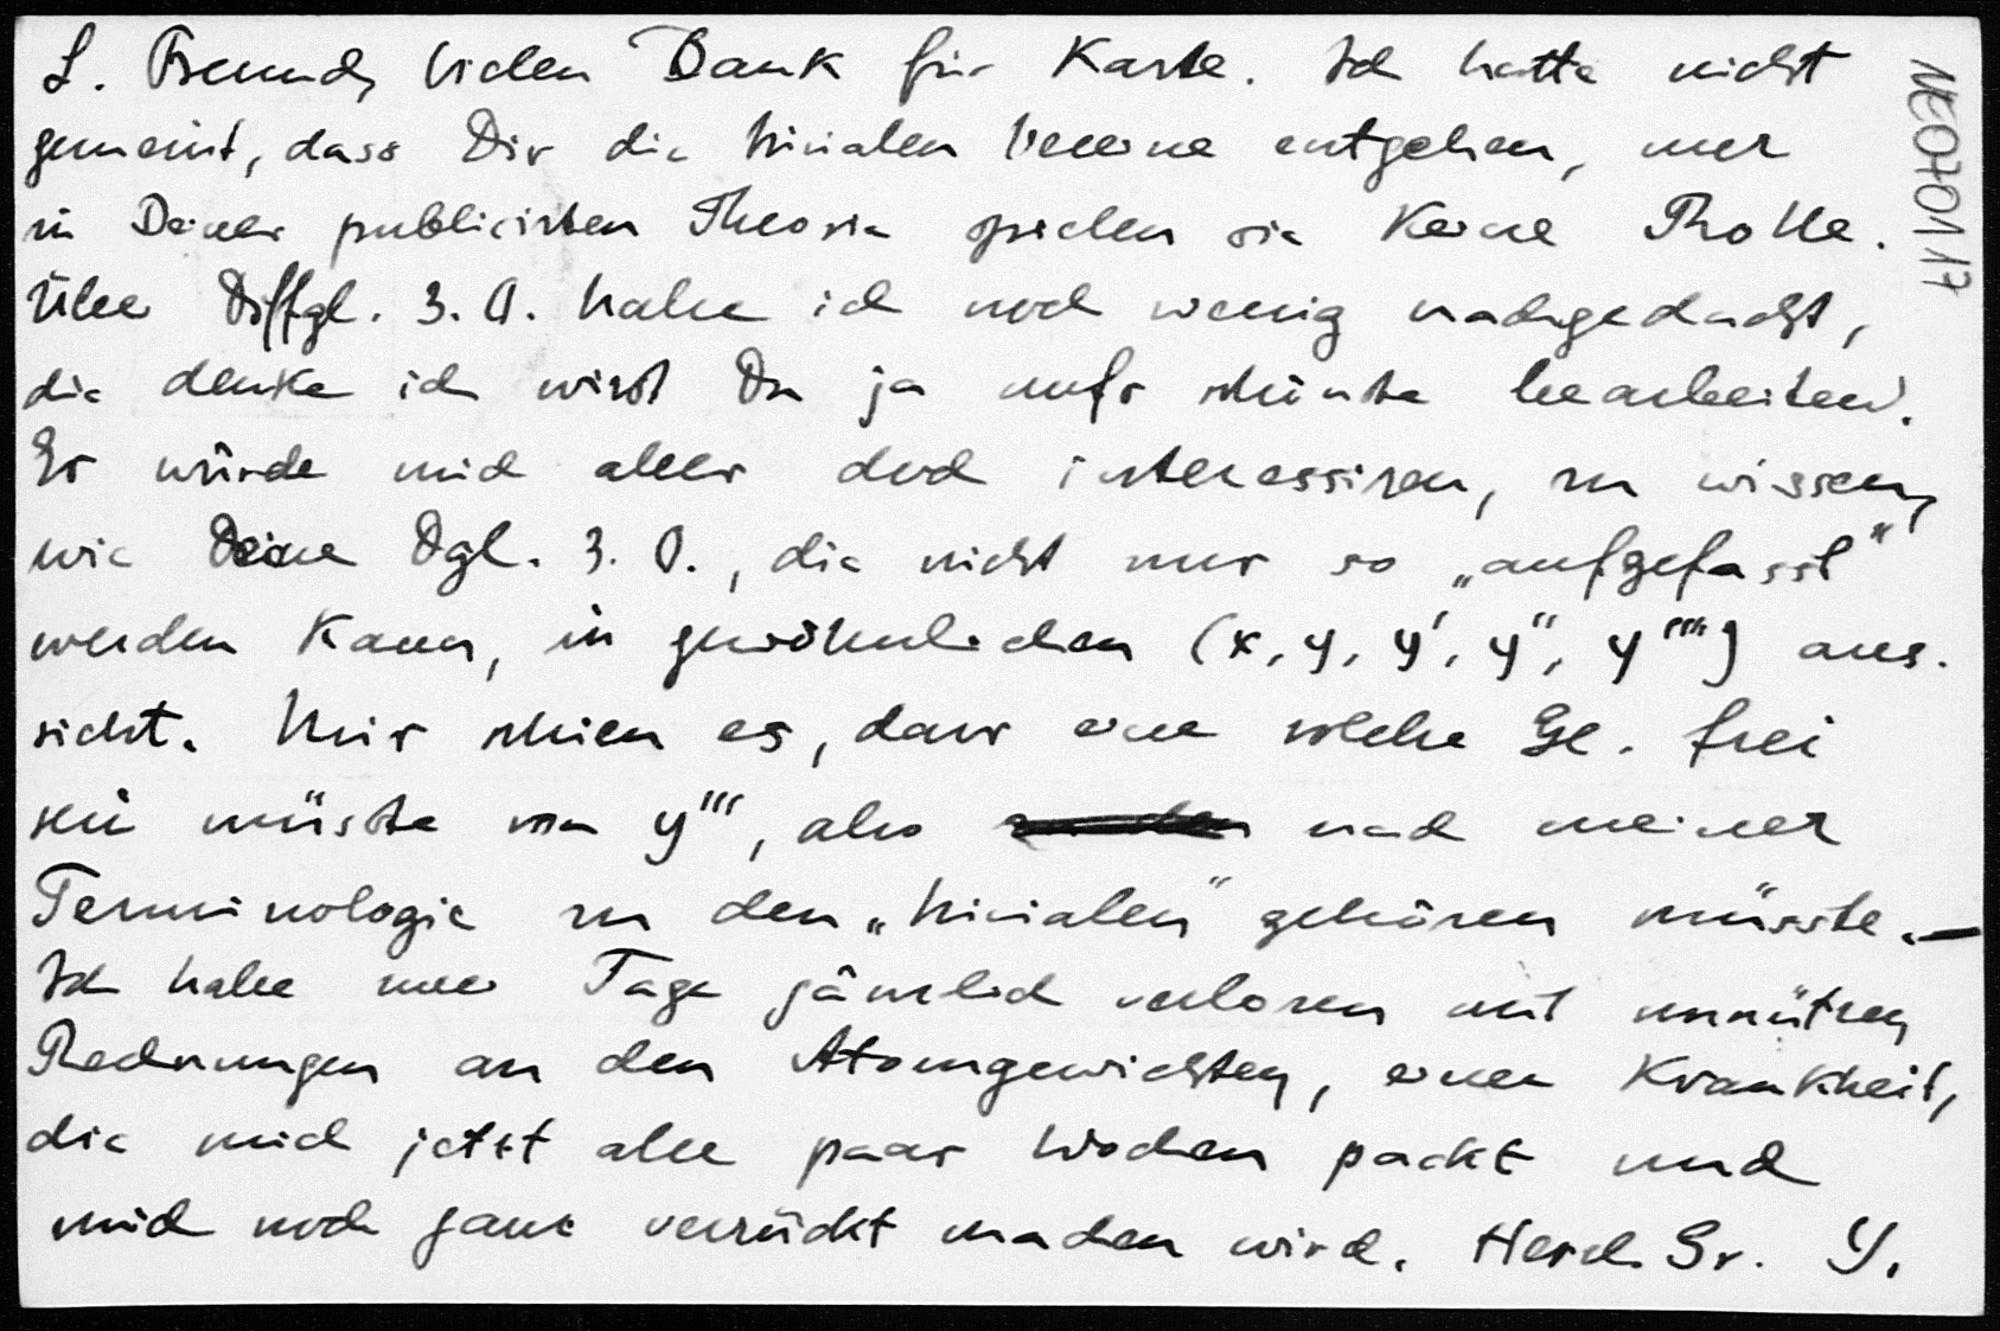 L. Freund, Vielen Dank für Karte. Ich hatte nicht
gemeint, dass Dir die trivialen Vereine entgehen, nur
in Deiner publicirten Theorie spielen sie keine Rolle.
Über Diffgl. 3. O. habe ich noch wenig nachgedacht,
die denke ich wirst Du ja aufs schönste bearbeiten.
Es würde mich aber doch interessiren, zu wissen,
wie Deine Dgl. 3. O., die nicht nur so „aufgefasst“
werden kann, in gewöhnlichen (x, y, y', y'', y''') aus-
sieht. Mir schien es, dass eine solche Gl. frei
sein müsste von y''', also nach meiner
Terminologie zu den „trivialen“ gehören müsste. —
Ich habe neue Tage jämerlich verloren mit unnützen
Rechnungen an den Atomgewichten, einer Krankheit,
die mich jetzt alle paar Wochen packt und
mich noch ganz verrückt machen wird. Herzl. Gr. Y.
NEO7O117